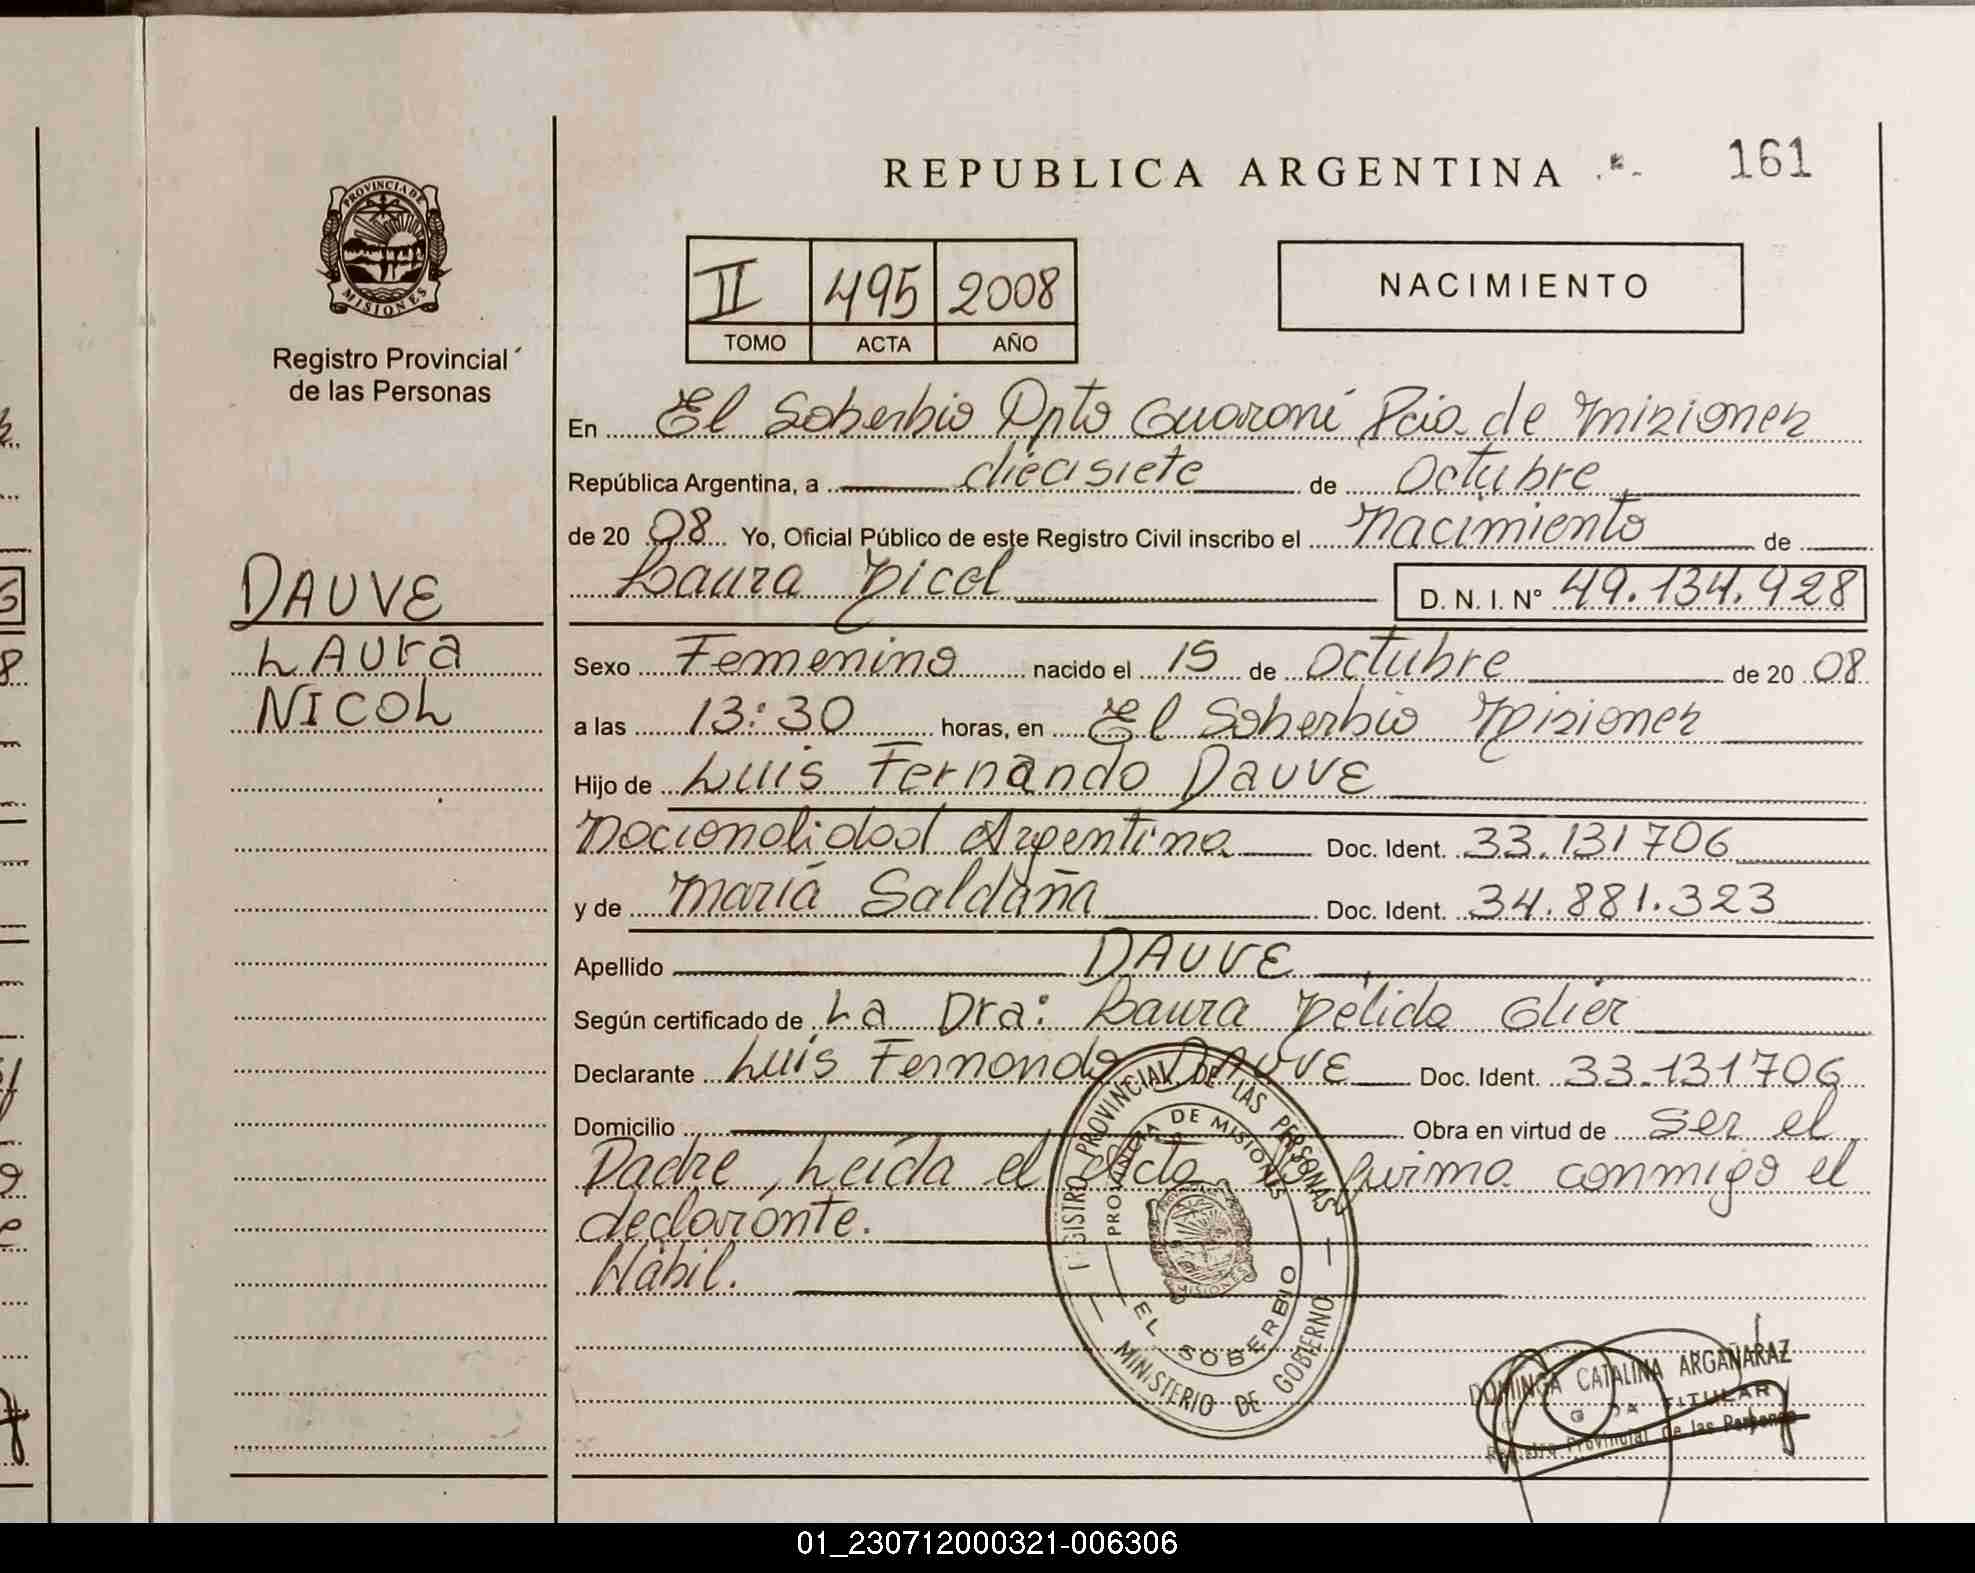 REPUBLICA ARGENTINA
161
PROVINCIA DE
MISIONES
Registro Provincial
de las Personas
II 495 2008
TOMO ACTA AÑO
NACIMIENTO
En El Soberbio Dpto Guaraní Pcia de Misiones
República Argentina, a diecisiete de Octubre
de 20 08 Yo, Oficial Público de este Registro Civil inscribo el Nacimiento de
Laura Nicol D. N. I. N° 49.134.928
DAUVE
LAUra
NICOL
Sexo Femenino nacido el 15 de Octubre de 20 08
a las 13:30 horas, en El Soberbio Misiones
Hijo de Luis Fernando Dauve
Nacionalidad Argentina Doc. Ident. 33.131706
y de María Saldaña Doc. Ident. 34.881.323
Apellido DAUVE
Según certificado de La Dra: Laura Nélida Glier
Declarante Luis Fernando DAUVE Doc. Ident. 33.131706
Domicilio Obra en virtud de ser el
Padre, Leída el acta la firma conmigo el
declarante.
Hábil.
REGISTRO PROVINCIAL DE LAS PERSONAS
PROVINCIA DE MISIONES
MISIONES
EL SOBERBIO
MINISTERIO DE GOBIERNO
DOMINGA CATALINA ARGAÑARAZ
TITULAR
Registro Provincial de las Personas
01_230712000321-006306